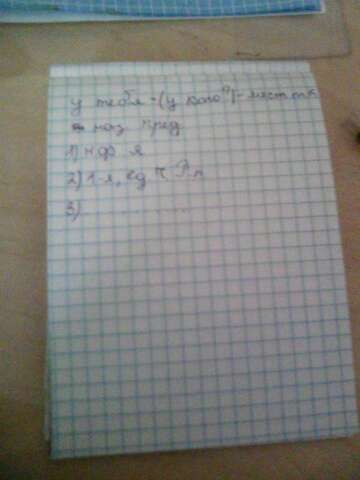 у тебя - (у кого?) - мест т.к
наз пред
1) н.ф я
2) 1-л, ед ч Р.п
3) ............